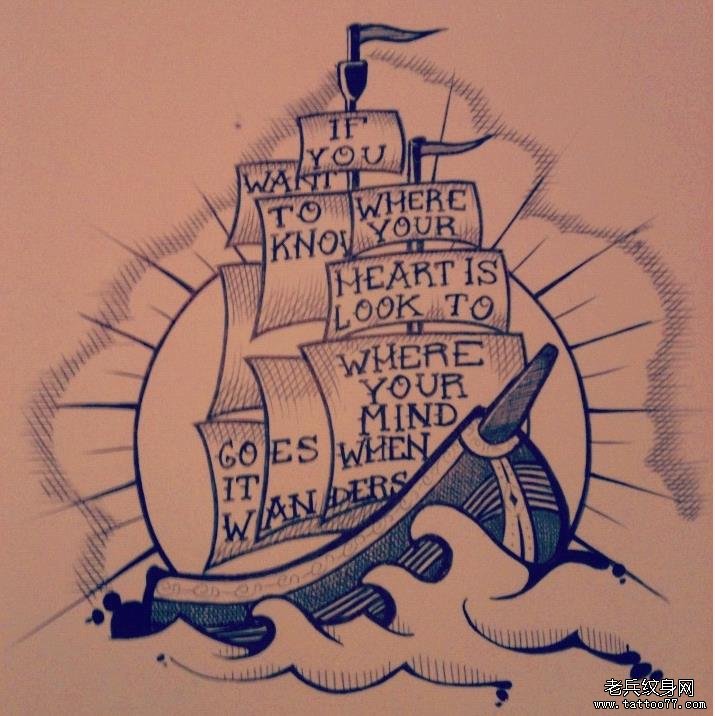 IF
YOU
WANT
TO
KNOW
WHERE
YOUR
HEART IS
LOOK TO
WHERE
YOUR
MIND
GOES WHEN
IT
WANDERS
老兵纹身网
www.tattoo77.com